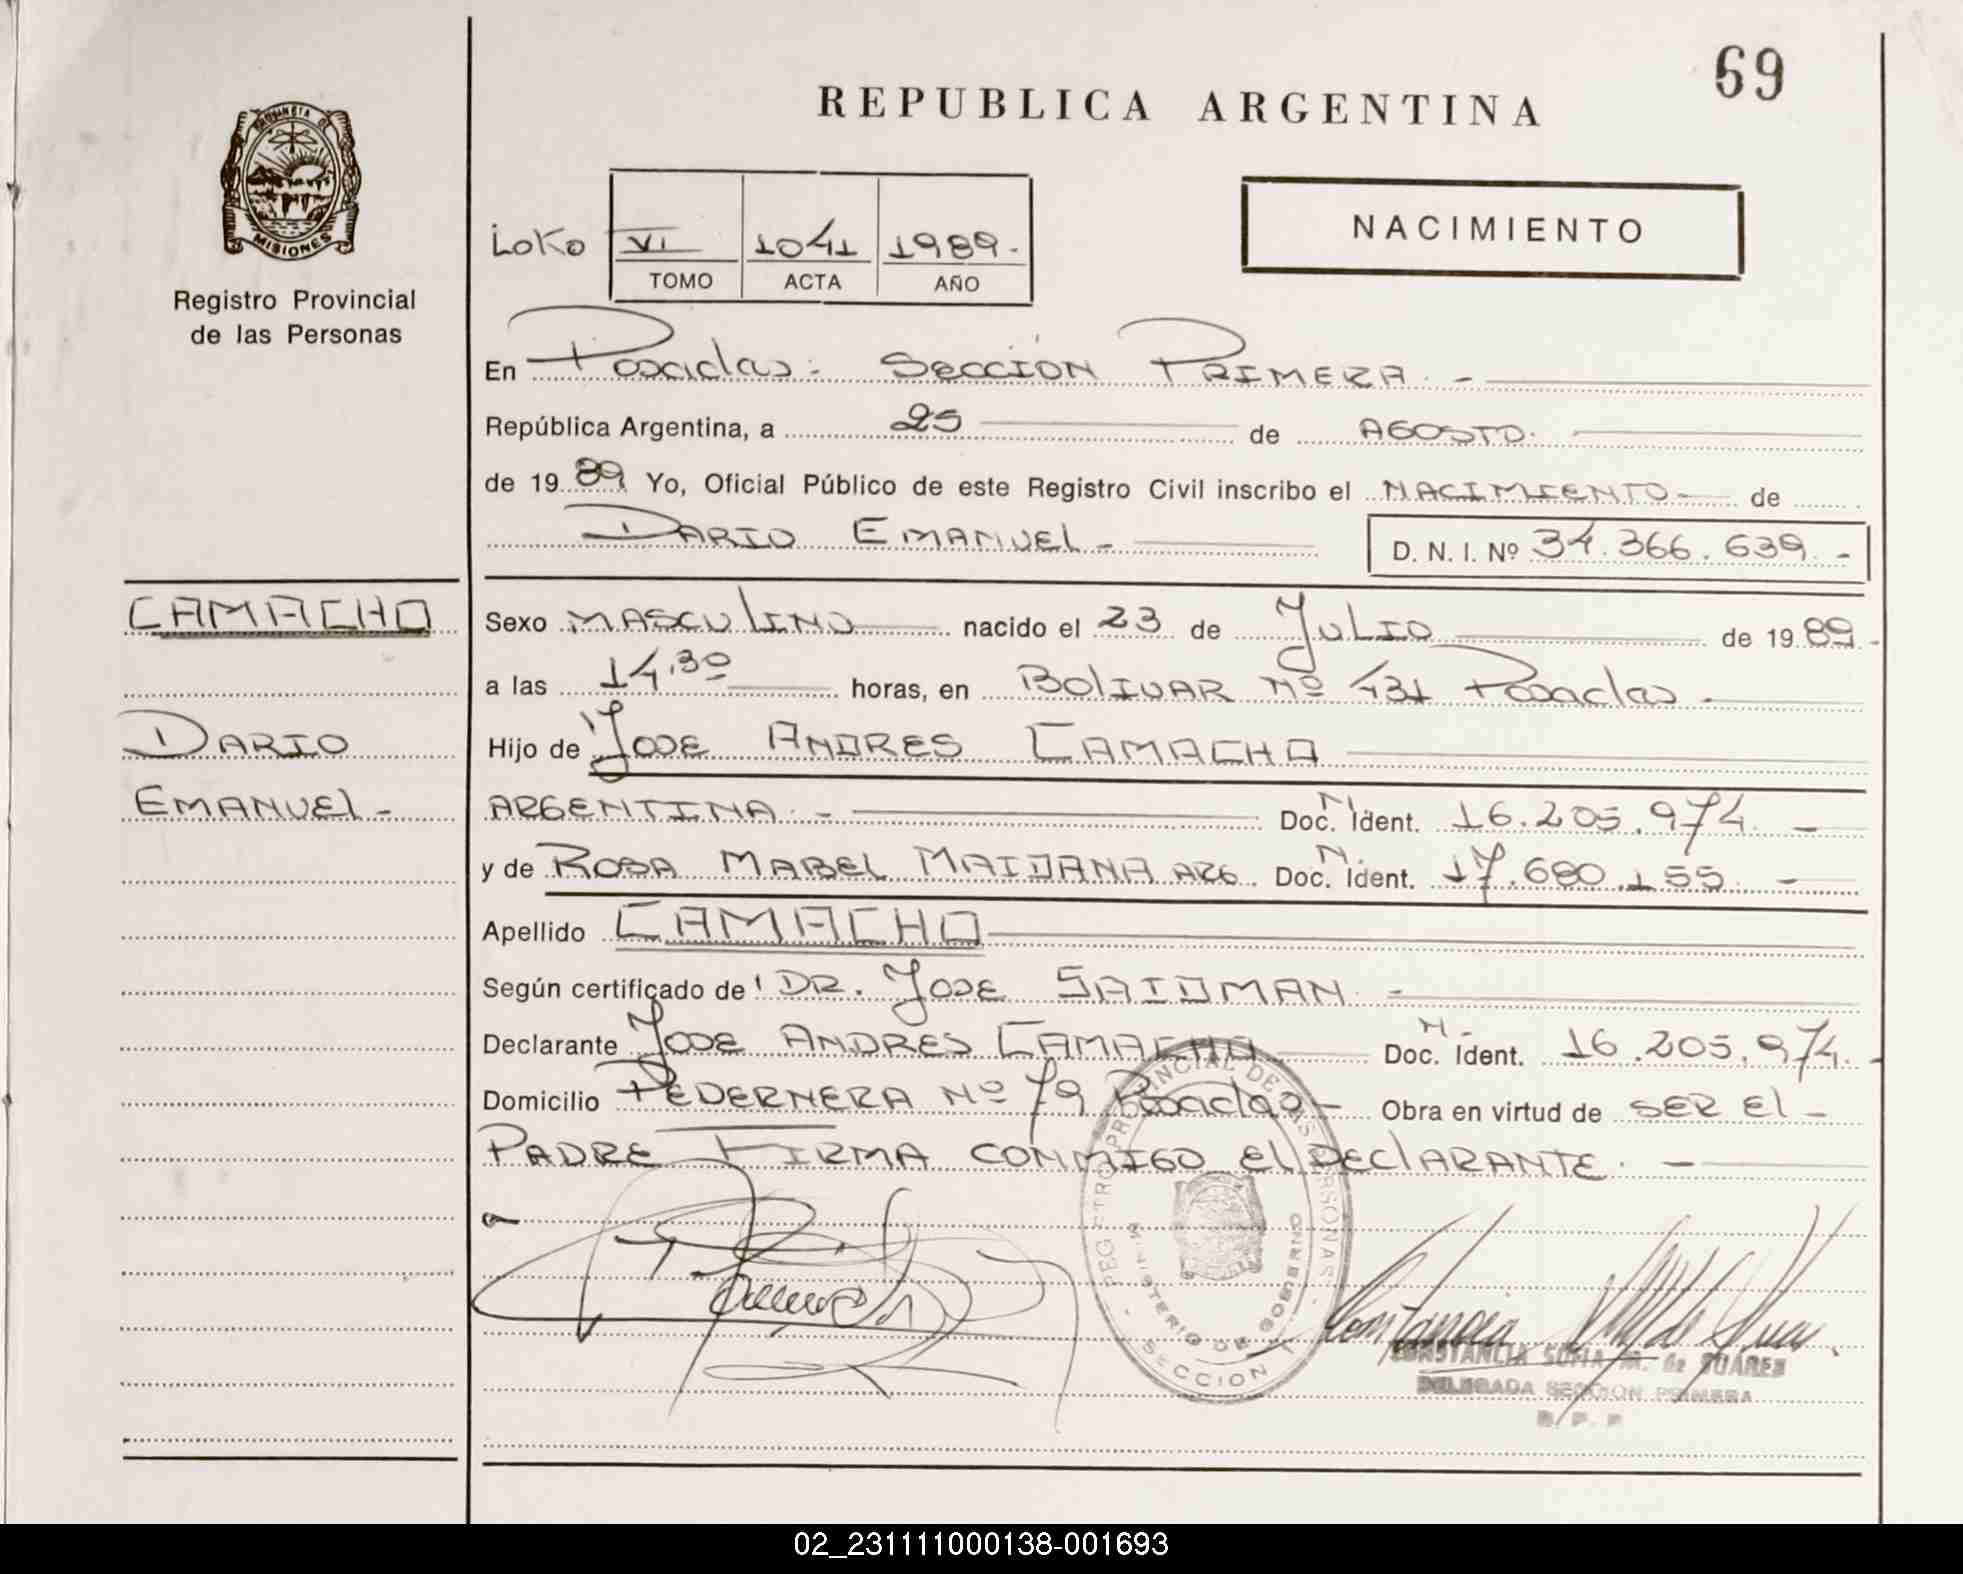 69
REPUBLICA ARGENTINA
PROVINCIA DE
MISIONES
Registro Provincial
de las Personas
NACIMIENTO
VI 1041 1989.-
TOMO ACTA AÑO
En Posadas: Sección PRIMERA.-
República Argentina, a 25 de AGOSTO.
de 1989 Yo, Oficial Público de este Registro Civil inscribo el NACIMIENTO- de
DARIO EMANUEL-
D. N. I. Nº 34.366.639.-
CAMACHO
DARIO
EMANUEL-
Sexo MASCULINO nacido el 23 de JULIO de 1989.-
a las 14,30 horas, en BOLIVAR Nº 431 Posadas-
Hijo de JOSE ANDRES CAMACHO
ARGENTINA.- Doc. N. Ident. 16.205.974.-
y de ROSA MABEL MAIDANA ARG. Doc. N. Ident. 17.680.155.-
Apellido CAMACHO
Según certificado de DR. JOSE SAIDMAN.-
Declarante JOSE ANDRES CAMACHO Doc. N. Ident. 16.205.974.-
Domicilio PEDERNERA Nº 79 Posadas- Obra en virtud de SER El-
PADRE FIRMA CONMIGO El DEClARANTE.-
REGISTRO PROVINCIAL DE LAS PERSONAS
MINISTERIO DE GOBIERNO
SECCION 1
CONSTANCIA SOFIA M. de SUÁREZ
DELEGADA SECCION PRIMERA
R. P. P
02_231111000138-001693